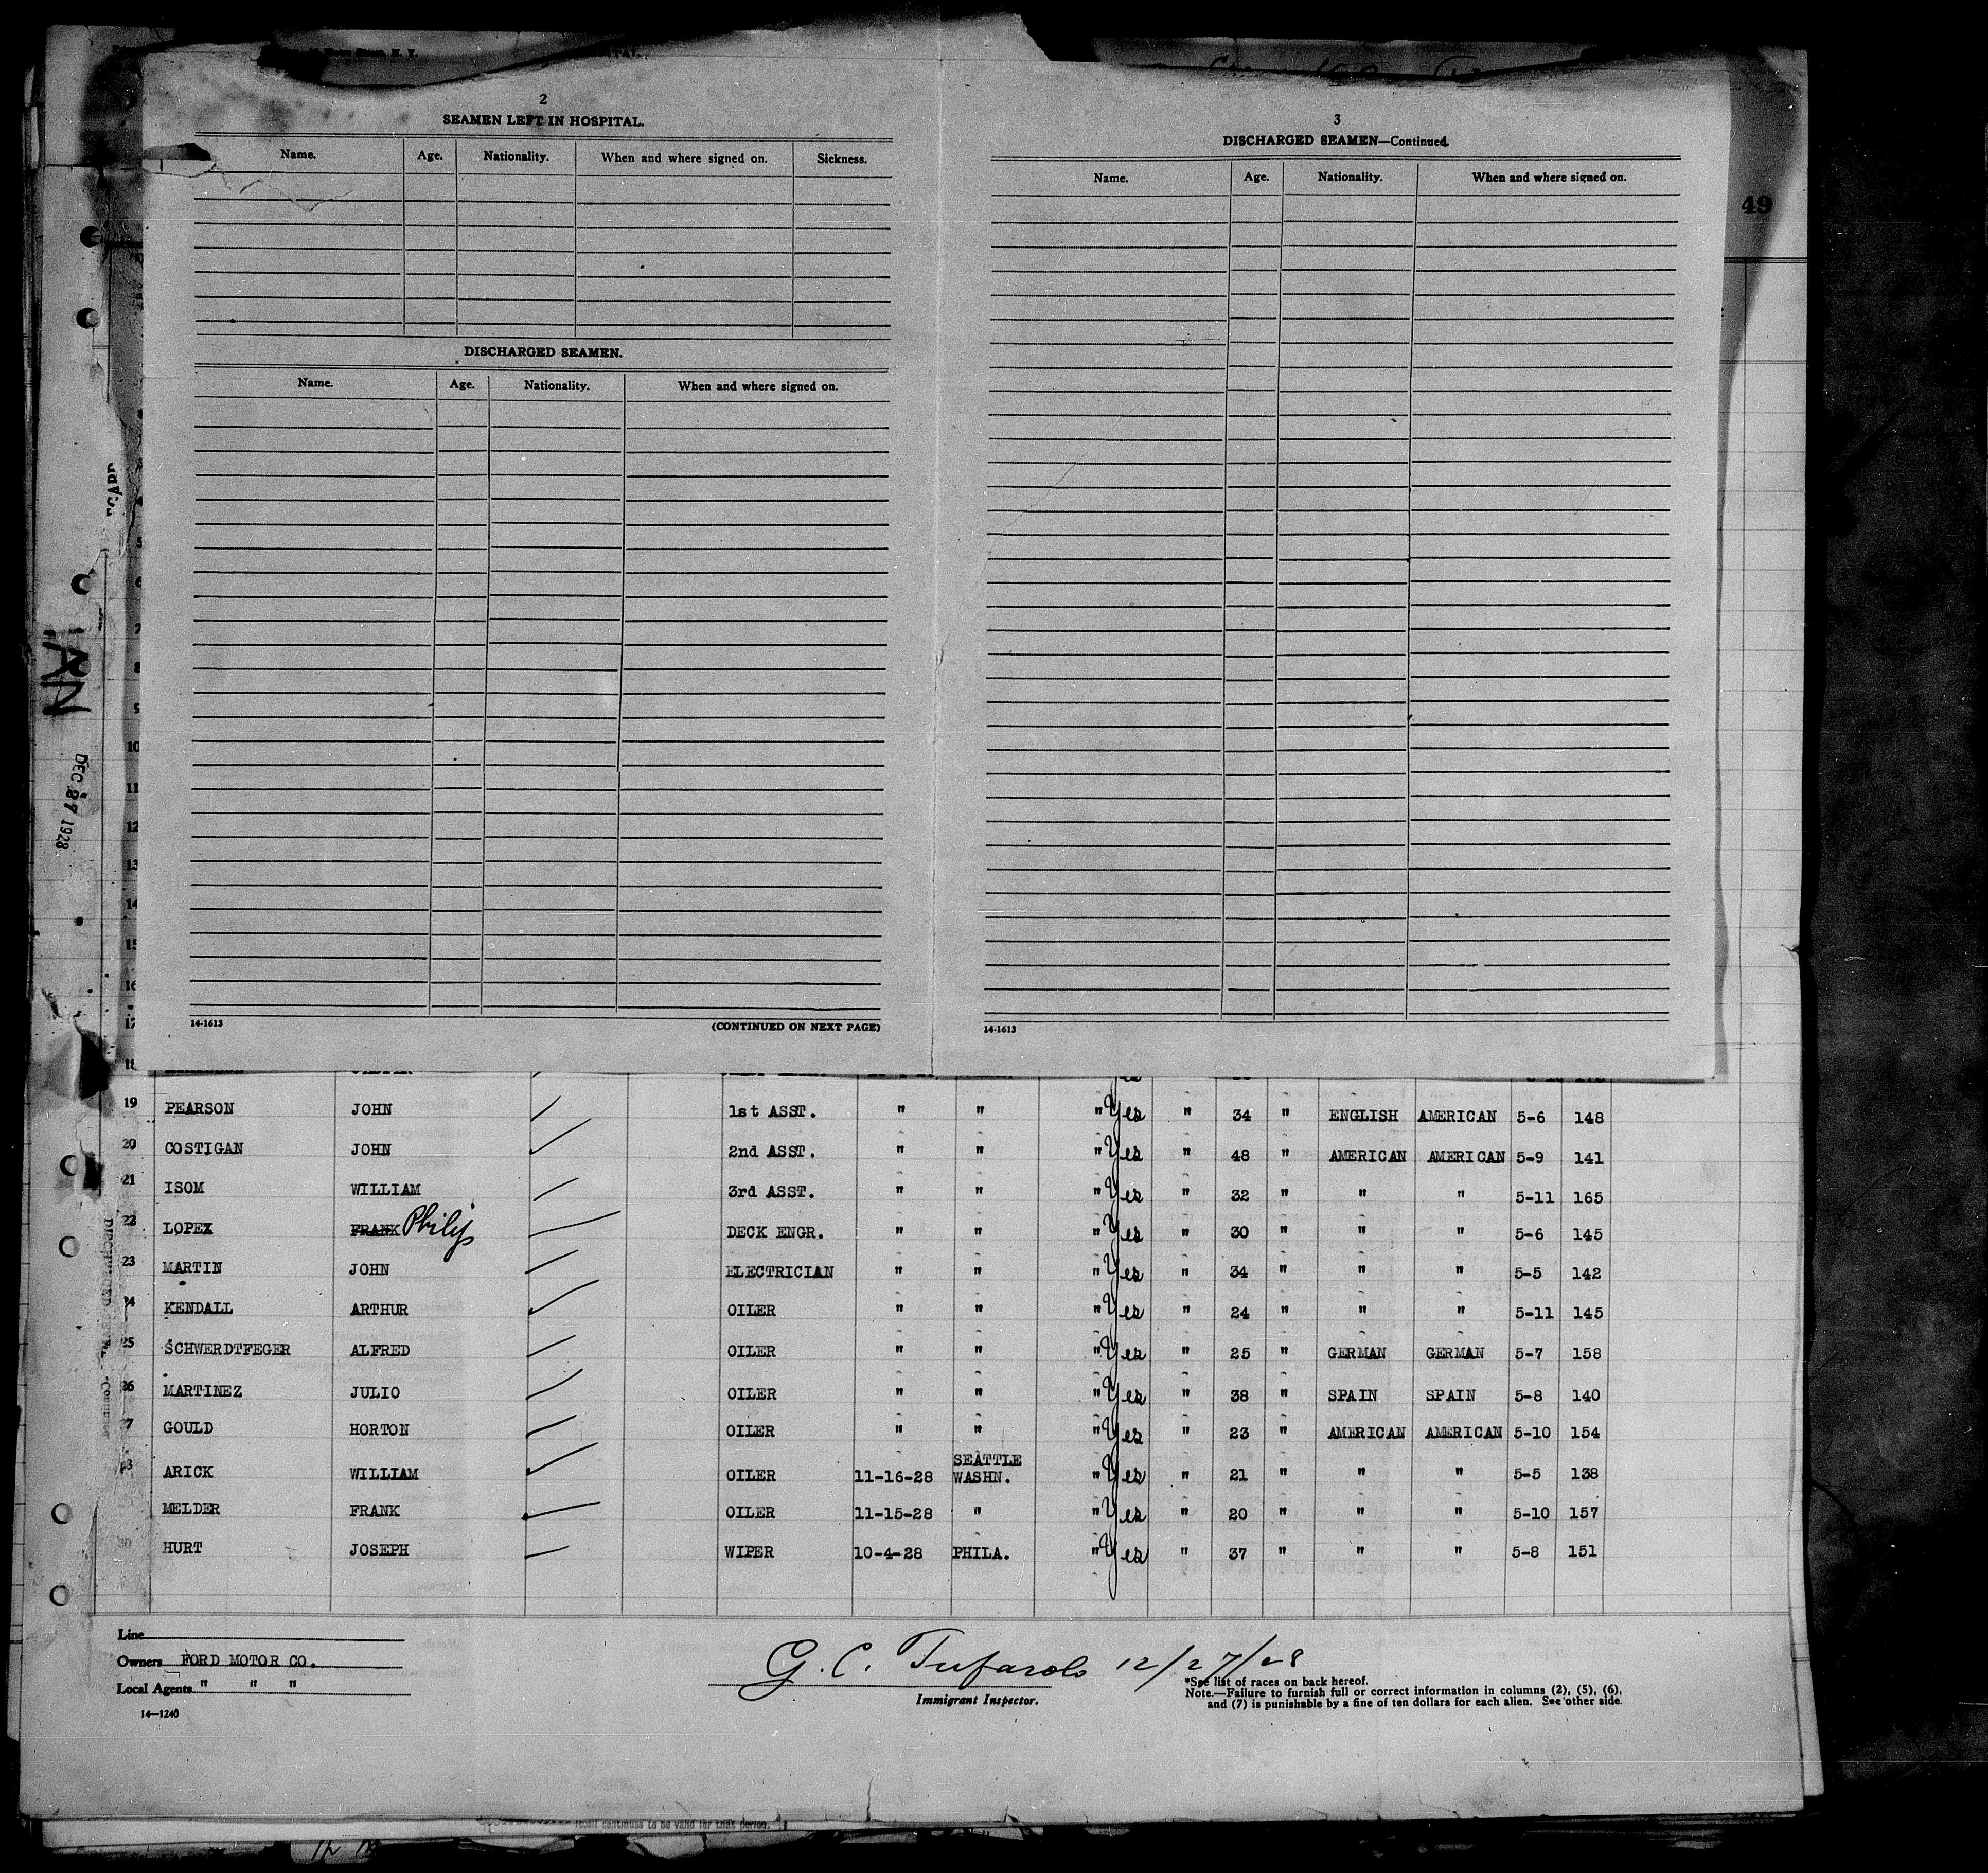 2
SEAMEN LEFT IN HOSPITAL.
Name. Age. Nationality. When and where signed on. Sickness.
DISCHARGED SEAMEN.
Name. Age. Nationality. When and where signed on.
14-1613 (CONTINUED ON NEXT PAGE)
3
DISCHARGED SEAMEN—Continued.
Name. Age. Nationality. When and where signed on.
14-1613
49
DEC 27 1928
10
11
12
13
14
15
16
17
18
19 PEARSON JOHN 1st ASST. " " " Yes " 34 " ENGLISH AMERICAN 5-6 148
20 COSTIGAN JOHN 2nd ASST. " " " Yes " 48 " AMERICAN AMERICAN 5-9 141
21 ISOM WILLIAM 3rd ASST. " " " Yes " 32 " " " 5-11 165
22 LOPEZ FRANK Philip DECK ENGR. " " " Yes " 30 " " " 5-6 145
23 MARTIN JOHN ELECTRICIAN " " " Yes " 34 " " " 5-5 142
24 KENDALL ARTHUR OILER " " " Yes " 24 " " " 5-11 145
25 SCHWERDTFEGER ALFRED OILER " " " Yes " 25 " GERMAN GERMAN 5-7 158
26 MARTINEZ JULIO OILER " " " Yes " 38 " SPAIN SPAIN 5-8 140
27 GOULD HORTON OILER " " " Yes " 23 " AMERICAN AMERICAN 5-10 154
28 ARICK WILLIAM OILER 11-16-28 SEATTLE WASHN. " Yes " 21 " " " 5-5 138
MELDER FRANK OILER 11-15-28 " " Yes " 20 " " " 5-10 157
30 HURT JOSEPH WIPER 10-4-28 PHILA. " Yes " 37 " " " 5-8 151
Line
Owners FORD MOTOR CO.
Local Agents " " "
14—1240
G. C. Tufarolo 12/27/28
Immigrant Inspector.
*See list of races on back hereof.
Note.—Failure to furnish full or correct information in columns (2), (5), (6),
and (7) is punishable by a fine of ten dollars for each alien. See other side.
continues to be valid for that period.